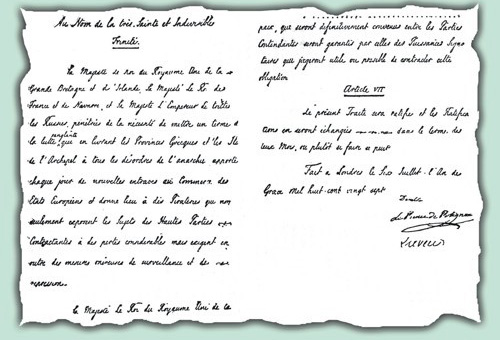 Au Nom de la très Sainte et Indivisible
Trinité.
Sa Majesté le roi du Royaume Uni de la
Grande Bretagne et d'Irlande, Sa Majesté Le Roi des
France et de Navarre, et Sa Majesté l'Empereur de toutes
les Russies, pénétrés de la nécessité de mettre un terme à
sanglante
la lutte, que en livrant les Provinces Grecques et les Iles
de l'Archipel à tous les désordres de l'anarchie apporte
chaque jour de nouvelles entraves au Commerce des
Etats Européens et donne lieu à des Pirateries qui non
seulement exposent les Sujets des Hautes Parties
Contractantes à des pertes considerables mais exigent en
outre des mesures onéreuses de surveillance et de
repression.
Sa Majesté Le Roi du Royaume Uni de la
paix, que seront définitivement convenus entre les Parties
Contractantes seront garantis par celles des Puissances Signa
taires que jugeront utile ou possible de contracter cette
obligation
Article VII
Le présent Traité sera ratifié et les Ratifica
tions en seront échangées dans le terme des
deux Mois, ou plutôt si faire se peut
Fait à Londres le Six Juillet. l'An des
Grace Mil huit-cent vingt sept
Dudley
Le Prince de Polignac
Lieven